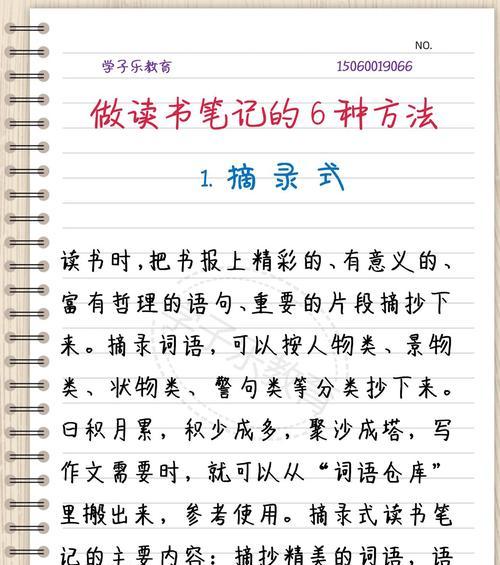 NO.
学子乐教育 15060019066
做读书笔记的6种方法
1. 摘录式
读书时,把书报上精彩的、有意义的、
富有哲理的语句、重要的片段摘抄下
来。摘录词语，可以按人物类、景物
类、状物类、警句类等分类抄下来。
日积月累，积少成多，聚沙成塔，写
作文需要时，就可以从“词语仓库”
里搬出来，参考使用。摘录式读书笔
记的主要内容：摘抄精美的词语，语
学子乐教育